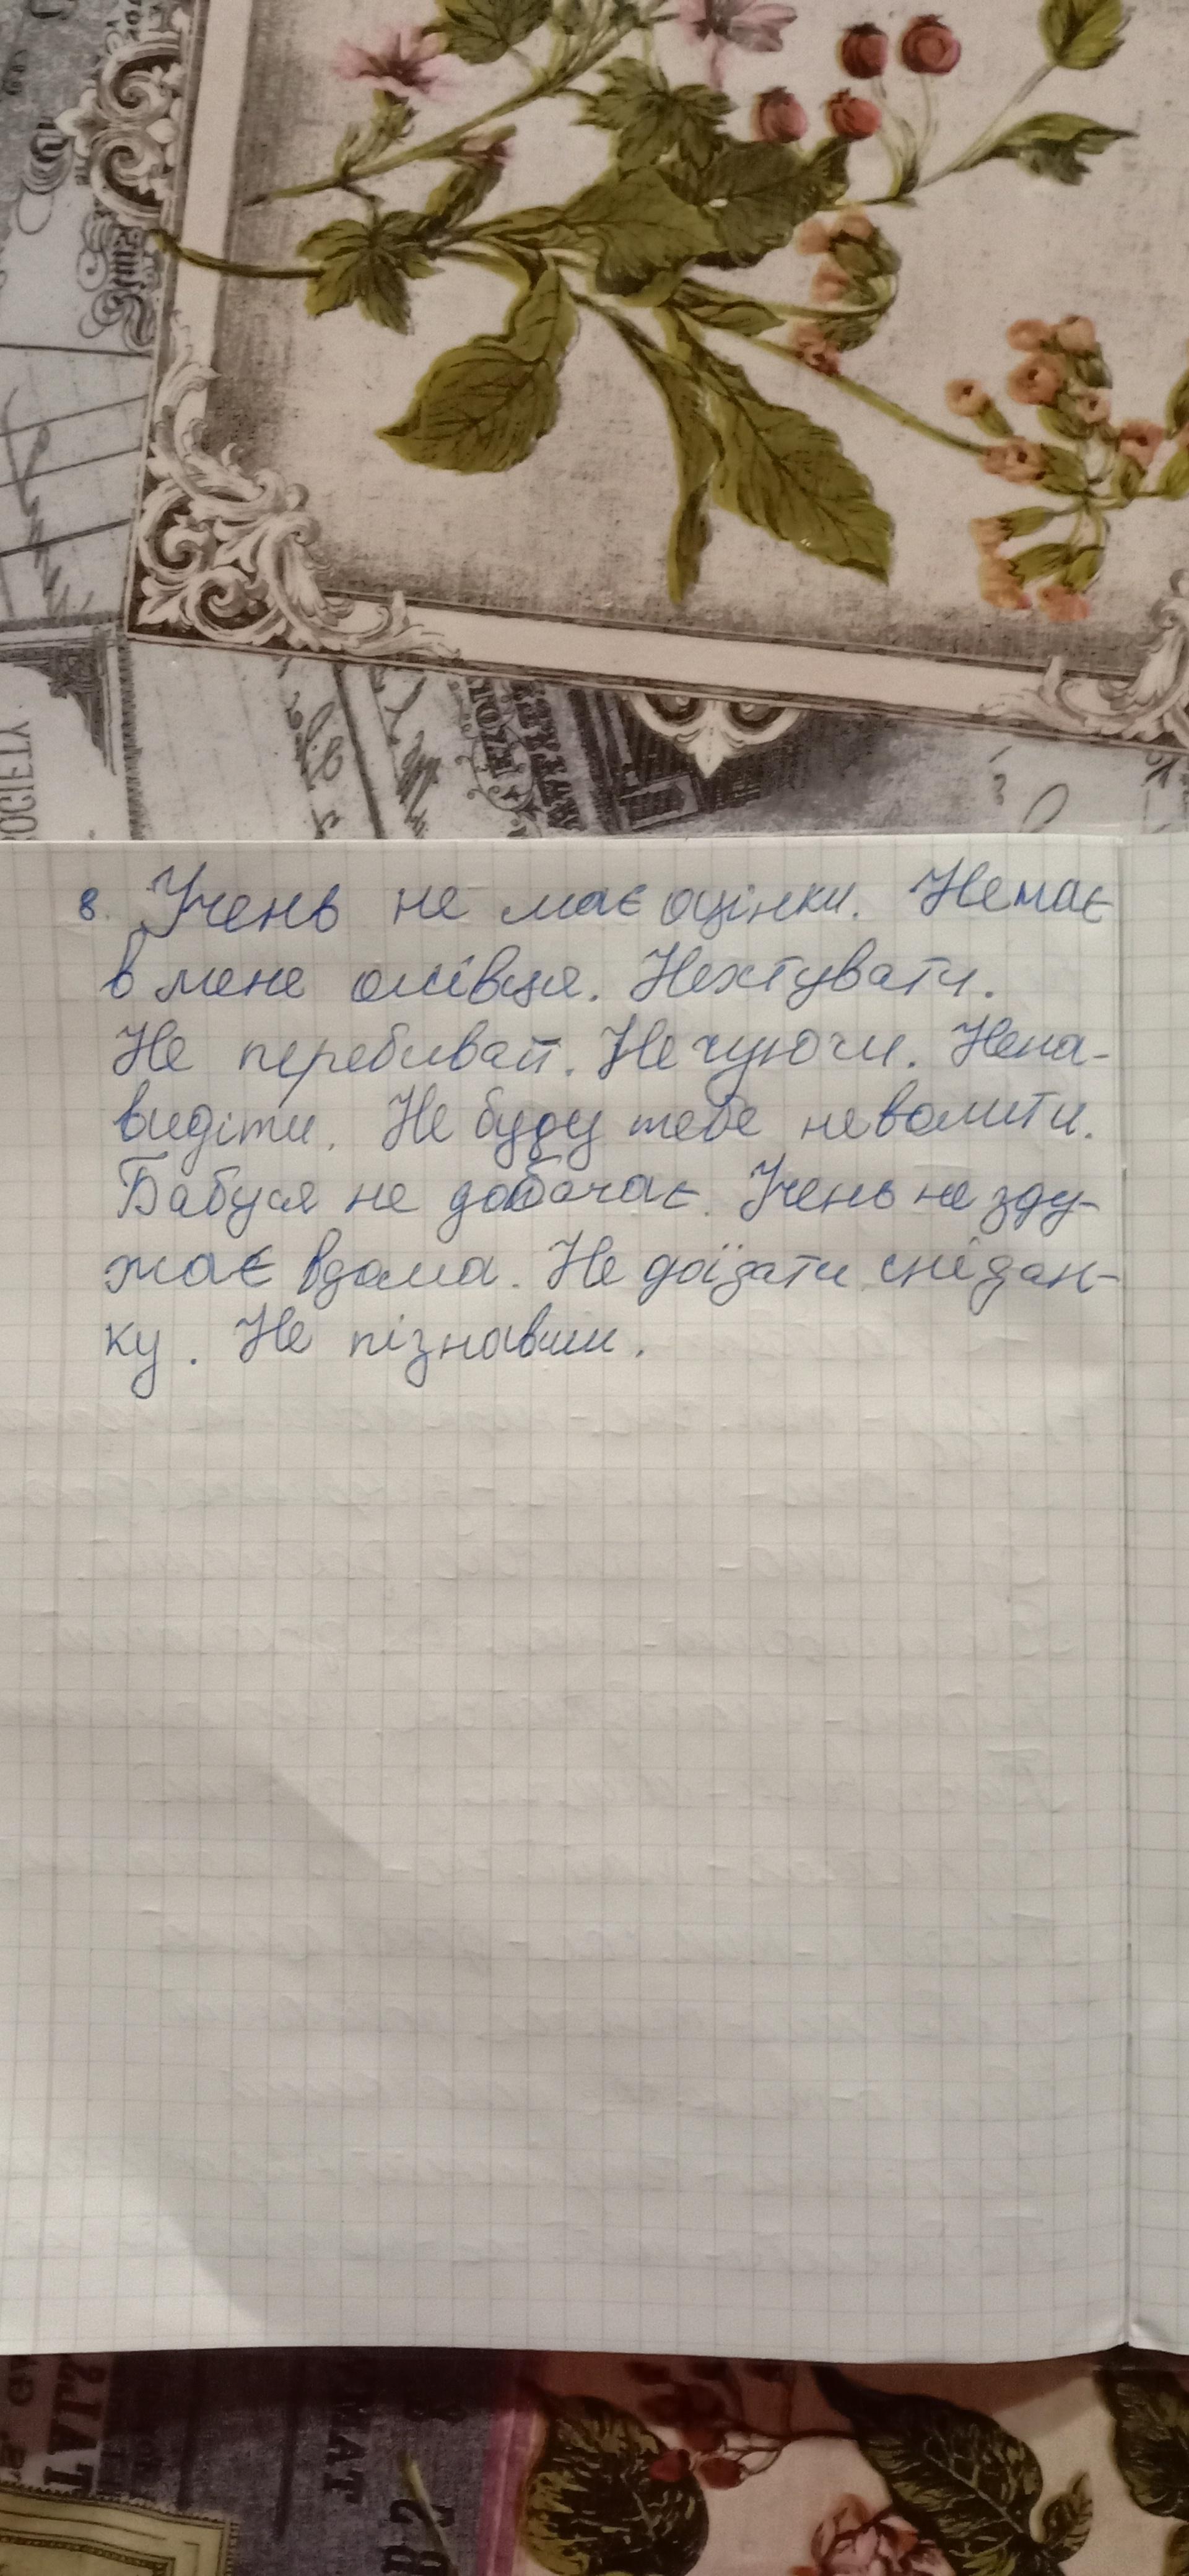 8. Учень не має оцінки. Немає
в мене олівця. Нехтувати.
Не перебивай. Не чуючи. Нена-
видіти. Не буду тебе неволити.
Бабуся не добачає. Учень не зду-
жає вдома. Не доїдати снідан-
ку. Не пізнавши.
OCIETY